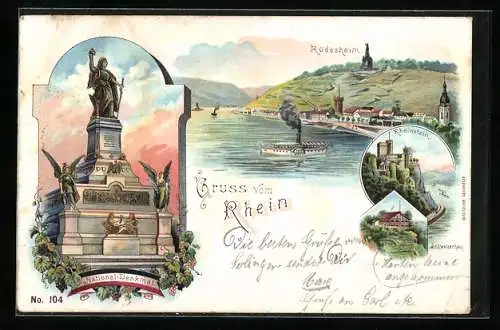 Rüdesheim.
Rheinstein.
Schweizerhaus
Gruss vom
Rhein
National-Denkmal
No. 104
Die besten Grüße von
Solingen sendet Dir
Max
Karten keine
angekommen
Gruß an Carl